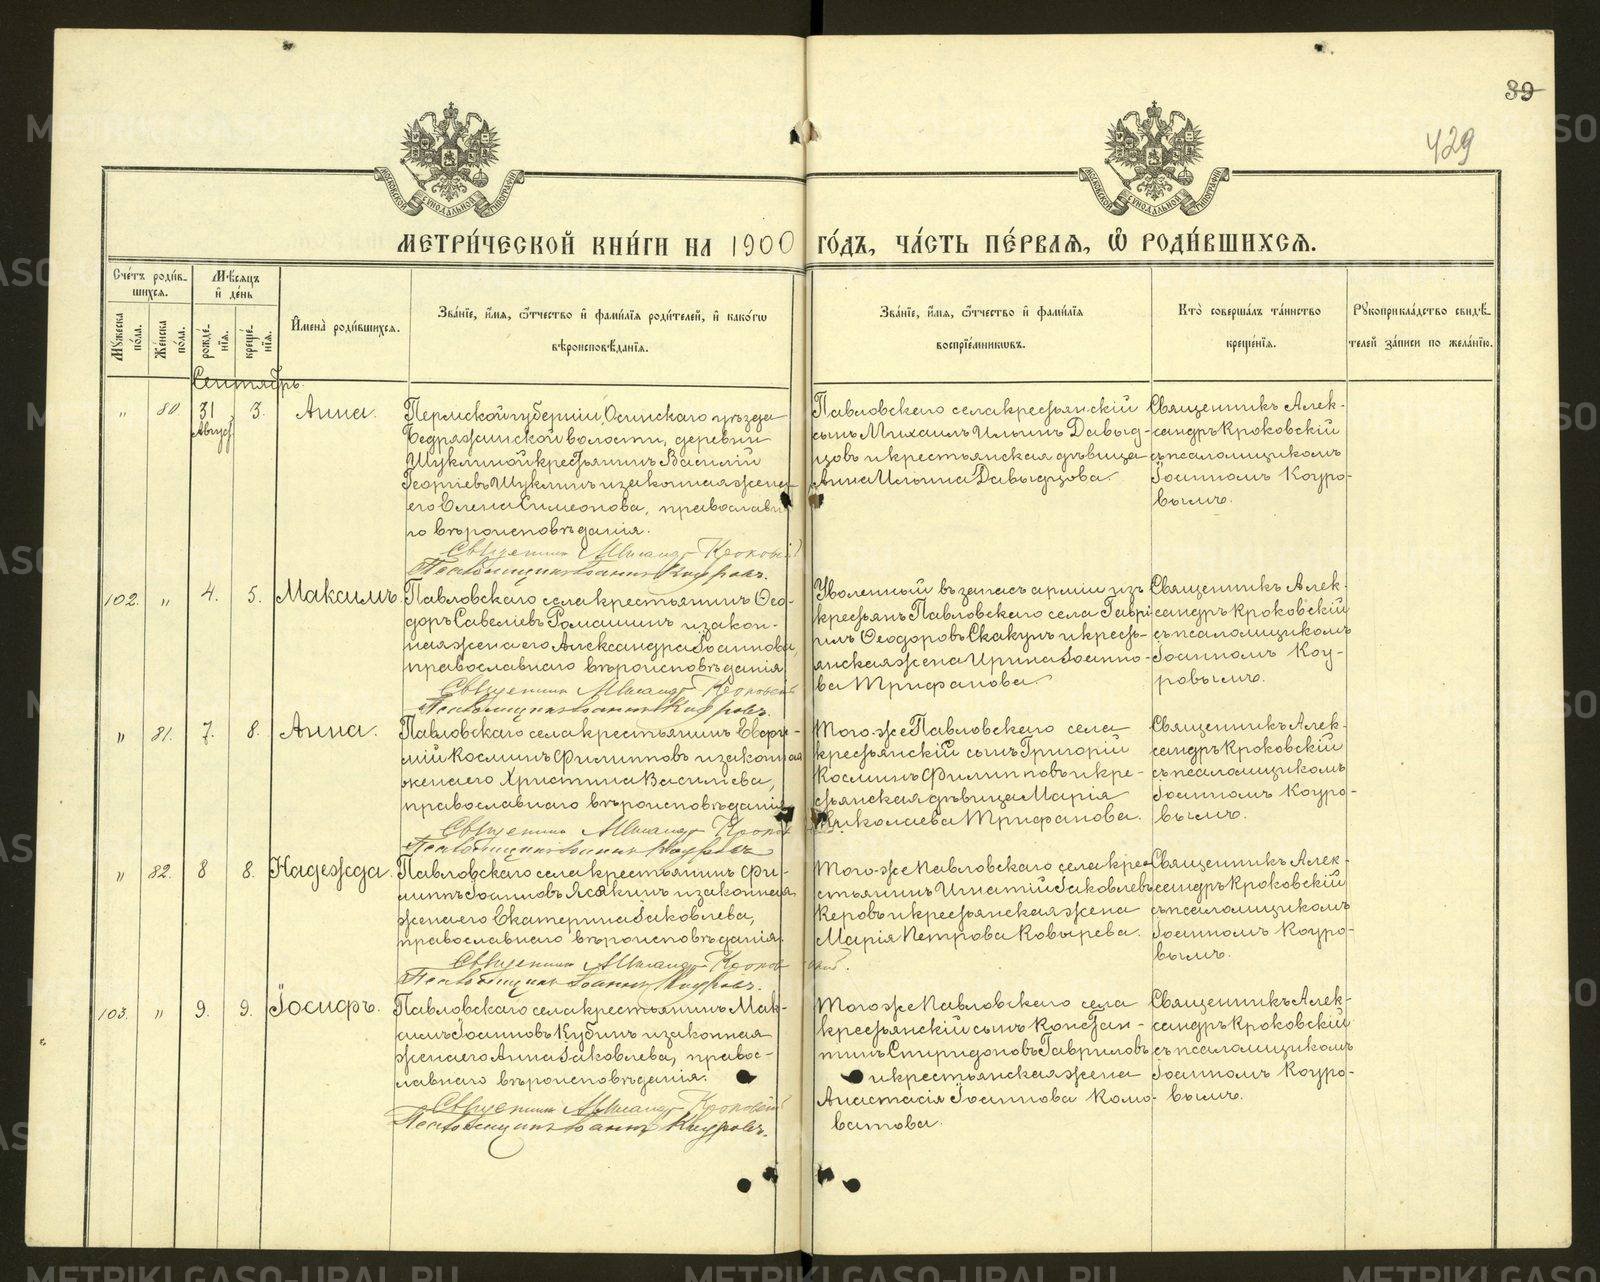 39
429
МОСКОВСКОЙ СѴНОДАЛЬНОЙ ТИПОГРАФІИ
МОСКОВСКОЙ СѴНОДАЛЬНОЙ ТИПОГРАФІИ
МЕТРИ́ЧЕСКОЙ КНИ́ГИ НА 1900 ГО́ДЪ, ЧА́СТЬ ПЕ́РВАЯ, Ѡ҆ РОДИ́ВШИХСЯ.
Сче́тъ роди́в-
шихся.
Мѣ́сяцъ
и҆ де́нь
Мꙋ́жеска
по́ла.
Же́нска
по́ла.
рожде́-
нїя.
креще́-
нїя.
И҆мена̀ роди́вшихся.
Зва́нїе, и҆́мя, ѻ҆́тчество и҆ фами́лїя роди́телей, и҆ како́гѡ
вѣроисповѣ́данїя.
Зва́нїе, и҆́мя, ѻ҆́тчество и҆ фами́лїя
воспрїе́мникѡвъ.
Кто̀ соверша́лъ та́инство
креще́нїя.
Рꙋкоприкла́дство свидѣ́-
телей за́писи по жела́нїю.
Сентябрь.
" 80. 31 Август 3. Анна.
Пермской губерніи, Осинскаго уѣзда
Бедряжинской волости, деревни
Шуклиной крестьянинъ Василій
Георгіевъ Шуклинъ и законная жена
его Елена Симеонова, православна-
го вѣроисповѣданія.
Священникъ Александръ Кроковскій
Псаломщикъ Іоаннъ Коуровъ.
Павловскаго села крестьянскій
сынъ Михаилъ Ильинъ Давыд-
цовъ и крестьянская дѣвица
Анна Ильина Давыдцова.
Священникъ Алек-
сандръ Кроковскій
съ псаломщикомъ
Іоанномъ Коуро-
вымъ.
102. " 4. 5. Максимъ.
Павловскаго села крестьянинъ Ѳео-
доръ Савеліевъ Ромашинъ и закон-
ная жена его Александра Іоаннова,
православнаго вѣроисповѣданія
Священникъ Александръ Кроковскій
Псаломщикъ Іоаннъ Коуровъ.
Уволенный въ запасъ арміи изъ
крестьянъ Павловскаго села Гаврі-
илъ Ѳеодоровъ Скакунъ и кресть-
янская жена Ирина Іоанно-
ва Трифанова.
Священникъ Алек-
сандръ Кроковскій
съ псаломщикомъ
Іоанномъ Коу-
ровымъ.
" 81. 7. 8. Анна.
Павловскаго села крестьянинъ Евфи-
мій Косминъ Филипповъ и законная
жена его Христина Василіева,
православнаго вѣроисповѣданія
Священникъ Александръ Кроков
Псаломщикъ Іоаннъ Коуровъ
Того-же Павловскаго села
крестьянскій сынъ Григорій
Косминъ Филипповъ и кре-
стьянская дѣвица Марія
Николаева Трифанова.
Священникъ Алек-
сандръ Кроковскій
съ псаломщикомъ
Іоанномъ Коуро-
вымъ.
" 82. 8 8. Надежда.
Павловскаго села крестьянинъ Фи-
липъ Іоанновъ Ясакинъ и законная
жена его Екатерина Іаковлева,
православнаго вѣроисповѣданія.
Священникъ Александръ Кроковскій.
Псаломщикъ Іоаннъ Коуровъ.
Того-же Павловскаго села крес-
тьянинъ Игнатій Іаковлевъ
Керовъ и крестьянская жена
Марія Петрова Ковырева.
Священникъ Алек-
сандръ Кроковскій
съ псаломщикомъ
Іоанномъ Коуро-
вымъ.
103. " 9. 9. Іосифъ.
Павловскаго села крестьянинъ Мак-
симъ Іоанновъ Кубинъ и законная
жена его Анна Іаковлева, правос-
лавнаго вѣроисповѣданія.
Священникъ Александръ Кроковскій
Псаломщикъ Іоаннъ Коуровъ.
Того-же Павловскаго села
крестьянскій сынъ Констан-
тинъ Спиридоновъ Гавриловъ
и крестьянская жена
Анастасія Іоаннова Коло-
ватова.
Священникъ Алек-
сандръ Кроковскій
съ псаломщикомъ
Іоанномъ Коуро-
вымъ.
METRIKI.GASO-URAL.RU